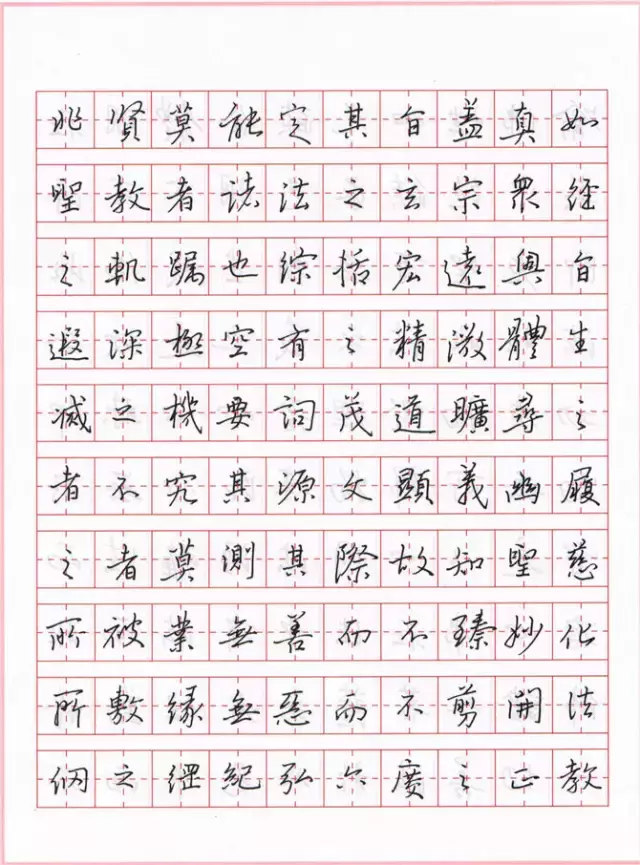 非賢莫能定其旨蓋真如
聖教者諸法之玄宗衆經
之軌躅也綜括宏遠奧旨
遐深極空有之精微體生
滅之機要詞茂道曠尋之
者不究其源文顯義幽履
之者莫測其際故知聖慈
所被業無善而不臻妙化
所敷緣無惡而不剪開法
網之綱紀弘六度之正教